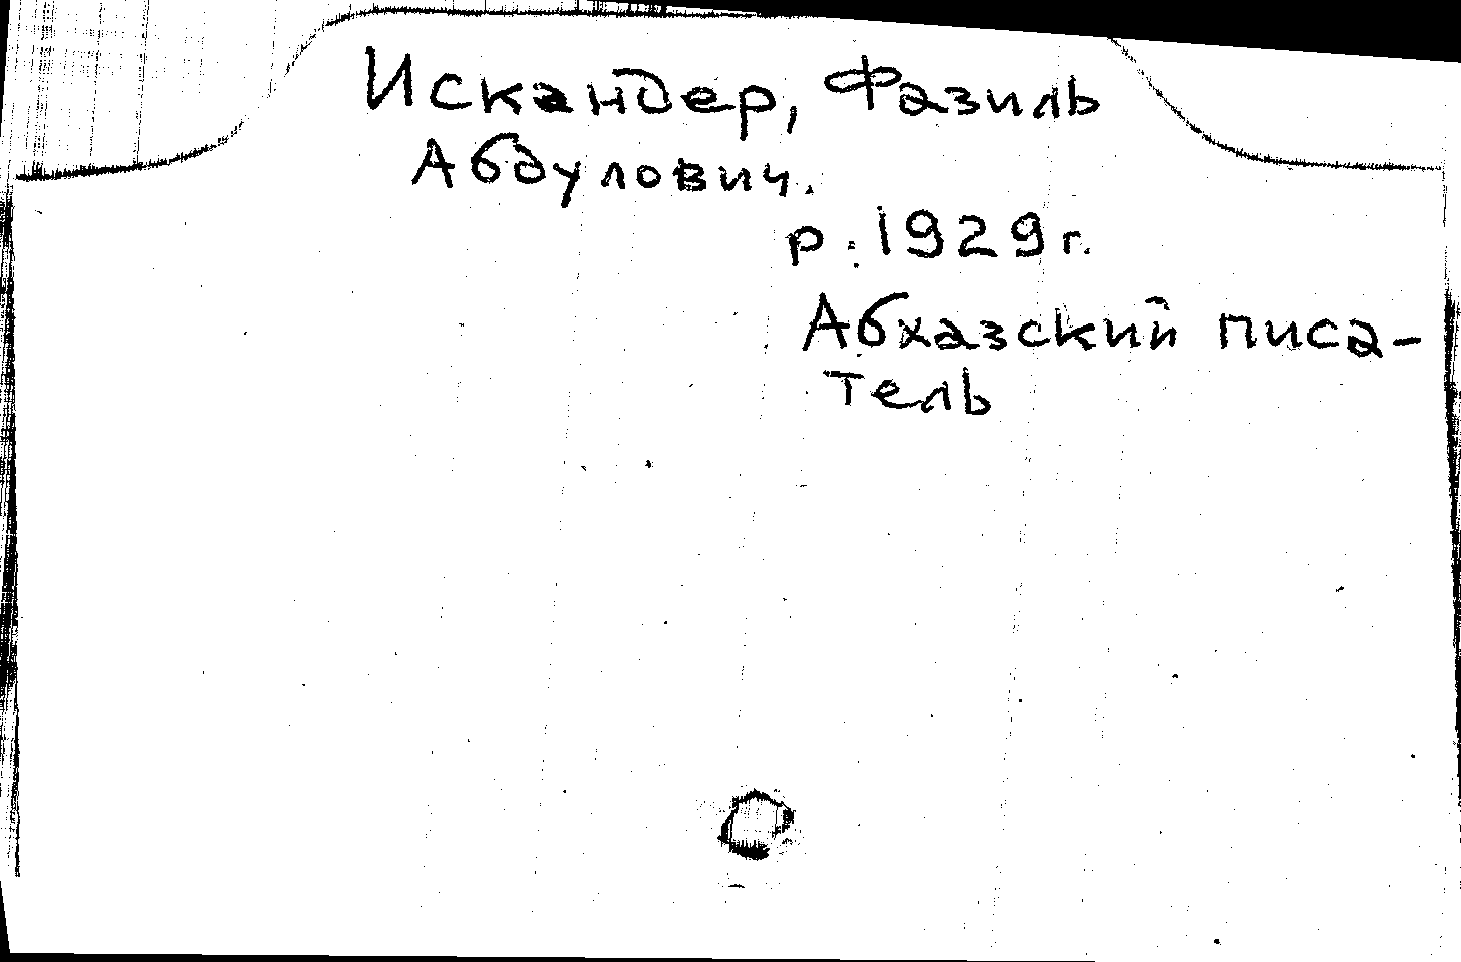 Искандер, Фазиль
Абдулович.
р. 1929 г.
Абхазский писа-
тель